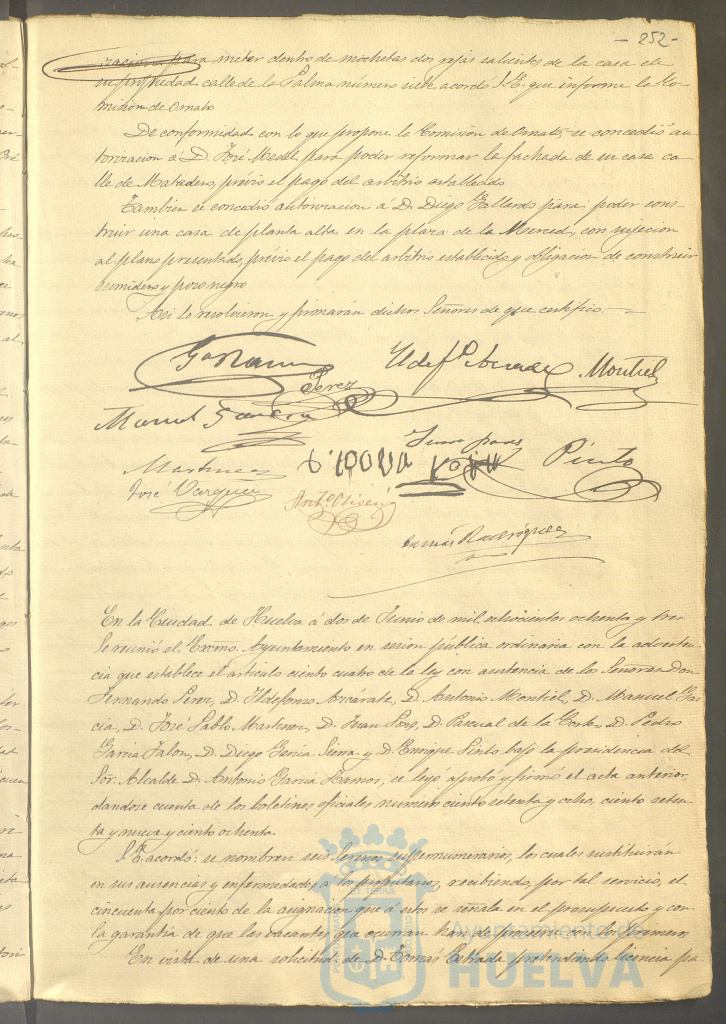 - 252 -
para meter dentro de mochetas dos rejas salientes de la casa de
su propiedad calle de la Palma número siete acordó S. E. que informe la Co-
misión de Ornato.
De conformidad con lo que propone la Comisión de Ornato, se concedió au-
torizacion a D. José para poder reformar la fachada de su casa ca-
lle de Mataderos, previo el pago del arbitrio establecido
Tambien se concedió autorizacion a D. Diego Gallardo para poder cons-
truir una casa de planta alta en la plaza de la Merced, con sujecion
al plano presentado, previo el pago del arbitrio establecido y obligacion de construir
sumidero y pozo negro
Asi lo resolvieron y firmarán dichos Señores de que certifico.
Perez
Montiel
Manuel Garcia
Juan Pons
Martinez
Pinto
José Vazquez
Rodriguez
En la Ciudad de Huelva á dos de Junio de mil ochocientos ochenta y tres
Se reunió el Excmo. Ayuntamiento en sesion pública ordinaria con la adverten-
cia que establece el articulo ciento cuatro de la ley con asistencia de los Señores Don
Fernando Perez, D. Ildefonso Azcárate, D. Antonio Montiel, D. Manuel Gar-
cia, D. José Pablo Martinez, D. Juan Pons, D. Pascual de la Corte, D. Pedro
Garcia Jalon, D. Diego Garcia Sierra y D. Enrique Pinto bajo la presidencia del
Sor. Alcalde D. Antonio Garcia Ramos, se leyó aprobó y firmó el acta anterior,
dandose cuenta de los boletines oficiales numeros ciento setenta y ocho, ciento seten-
ta y nueve y ciento ochenta.
S. E. acordó: se nombren seis Serenos supernumerarios, los cuales sustituirán
en sus ausencias y enfermedades a los propietarios, recibiendo, por tal servicio, el
cincuenta por ciento de la asignacion que á estos se señala en el presupuesto y con
la garantia de que las vacantes que ocurran han de proveerse en los primeros
En vista de una solicitud de D. Tomás Estrada pretendiendo licencia pa-
Ayuntamiento de
HUELVA